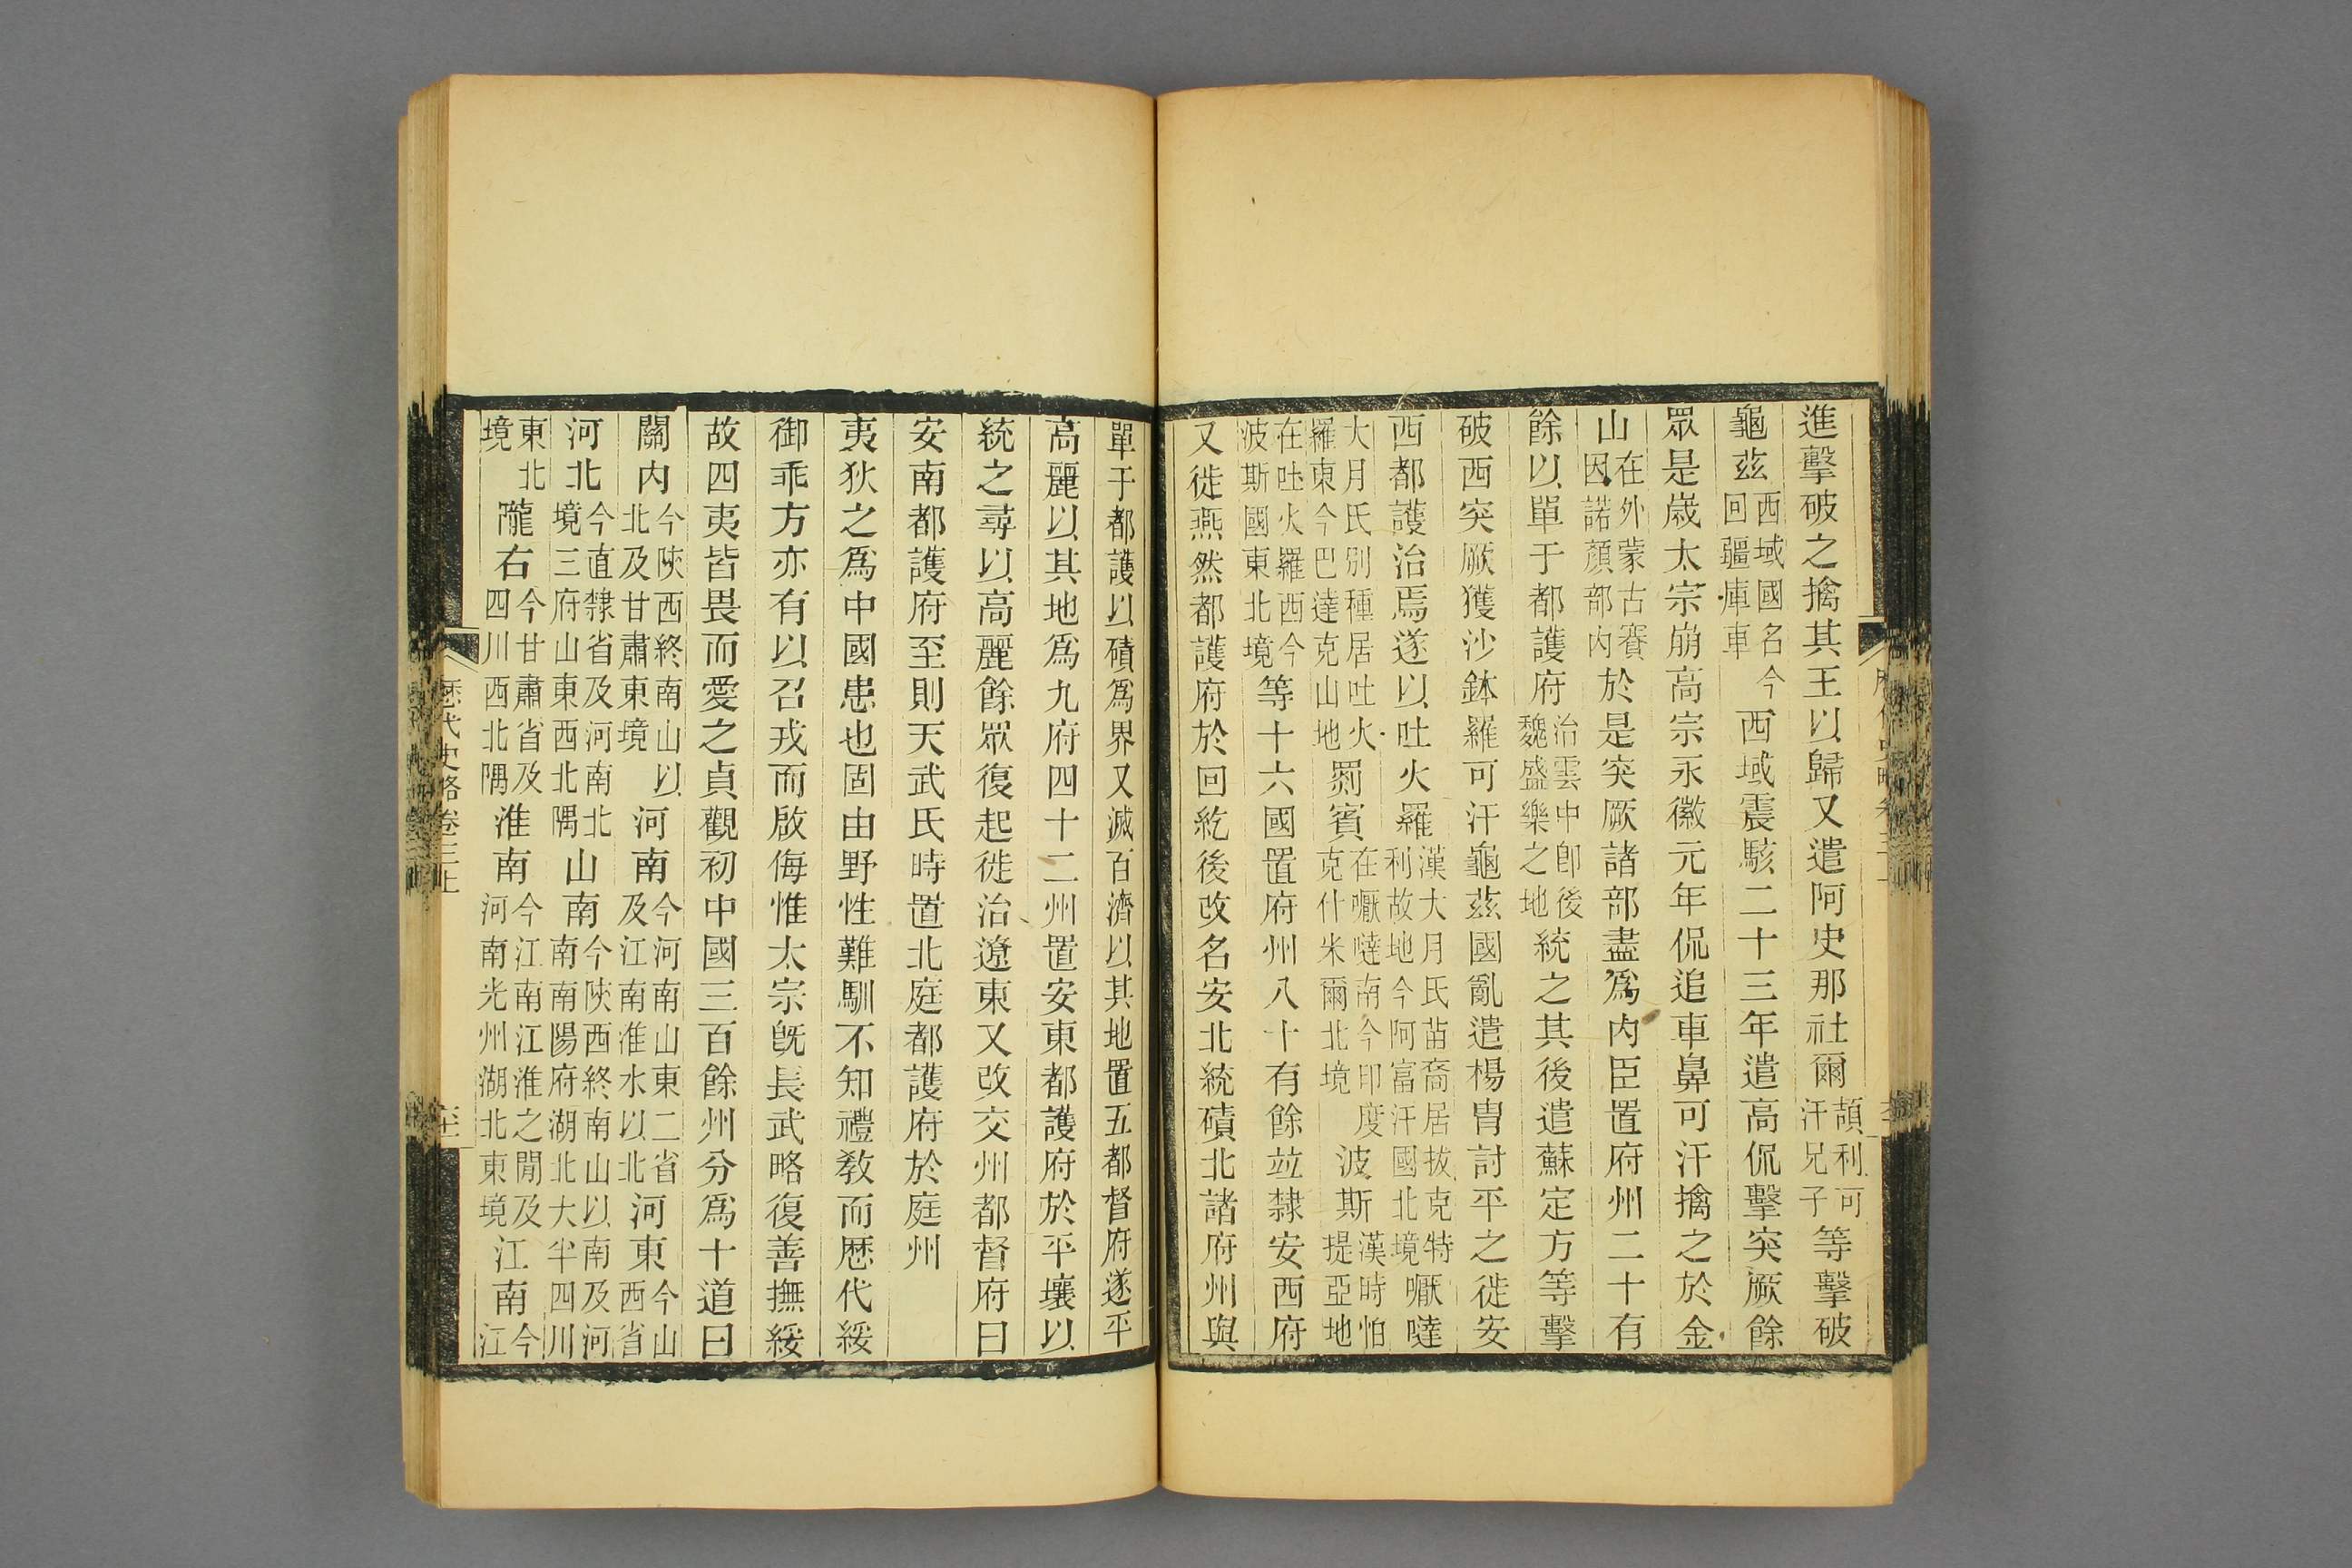 進擊破之擒其王以歸又遣阿史那社爾頡利可汗兄子等擊破
龜茲西域國名今回疆庫車西域震駭二十三年遣高侃擊突厥餘
眾是歲太宗崩高宗永徽元年侃追車鼻可汗擒之於金
山在外蒙古賽因諾顏部內於是突厥諸部盡爲內臣置府州二十有
餘以單于都護府治雲中卽後魏盛樂之地統之其後遣蘇定方等擊
破西突厥獲沙鉢羅可汗龜茲國亂遣楊胄討平之徙安
西都護治焉遂以吐火羅漢大月氏苗裔居拔克特利故地今阿富汗國北境嚈噠
大月氏別種居吐火羅東今巴達克山地罽賓在嚈噠南今印度克什米爾北境波斯漢時怕提亞地
在吐火羅西今波斯國東北境等十六國置府州八十有餘竝隸安西府
又徙燕然都護府於回紇後改名安北統磧北諸府州與
單于都護以磧爲界又滅百濟以其地置五都督府遂平
高麗以其地爲九府四十二州置安東都護府於平壤以
統之尋以高麗餘眾復起徙治遼東又改交州都督府曰
安南都護府至則天武氏時置北庭都護府於庭州
夷狄之爲中國患也固由野性難馴不知禮敎而歷代綏
御乖方亦有以召戎而啟侮惟太宗旣長武略復善撫綏
故四夷皆畏而愛之貞觀初中國三百餘州分爲十道曰
關內今陝西終南山以北及甘肅東境河南今河南山東二省及江南淮水以北河東今山西省
河北今直隸省及河南北境三府山東西北隅山南今陝西終南山以南及河南南陽府湖北大半四川
東北境隴右今甘肅省及四川西北隅淮南今江南江淮之閒及河南光州湖北東境江南今江
歷代史略卷三上